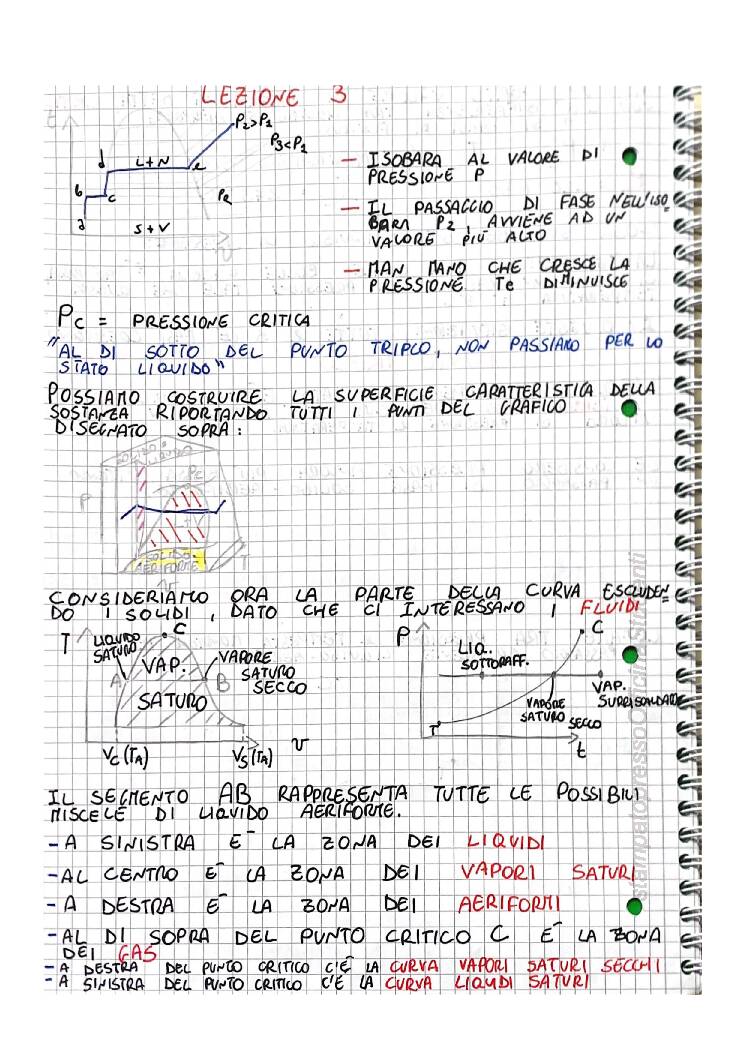 LEZIONE 3
t
P2>P1
P3<P1
d
L+N
e
b
c
PR
a
S+V
v
– ISOBARA AL VALORE DI
PRESSIONE P
– IL PASSAGGIO DI FASE NELL'ISO
BARA P2, AVVIENE AD UN
VALORE PIÙ ALTO
– MAN MANO CHE CRESCE LA
PRESSIONE Te DIMINUISCE
Pc = PRESSIONE CRITICA
"AL DI SOTTO DEL PUNTO TRIPLO, NON PASSIAMO PER LO
STATO LIQUIDO"
POSSIAMO COSTRUIRE LA SUPERFICIE CARATTERISTICA DELLA
SOSTANZA RIPORTANDO TUTTI I PUNTI DEL GRAFICO
DISEGNATO SOPRA:
SOLIDO
LIQUIDO
P
Pc
L+V
T
SOLIDO
AERIFORME
v
CONSIDERIAMO ORA LA PARTE DELLA CURVA ESCLUDEN
DO I SOLIDI, DATO CHE CI INTERESSANO I FLUIDI
T
LIQUIDO
SATURO
C
VAP.
SATURO
A
B
VAPORE
SATURO
SECCO
VC(TA)
VS(TA)
v
P
C
LIQ.
SOTTORAFF.
VAP.
SURRISCALDATO
VAPORE
SATURO SECCO
T
t
IL SEGMENTO AB RAPPRESENTA TUTTE LE POSSIBILI
MISCELE DI LIQUIDO AERIFORME.
- A SINISTRA È LA ZONA DEI LIQUIDI
- AL CENTRO È LA ZONA DEI VAPORI SATURI
- A DESTRA È LA ZONA DEI AERIFORMI
- AL DI SOPRA DEL PUNTO CRITICO C È LA ZONA
DEI GAS
- A DESTRA DEL PUNTO CRITICO C'È LA CURVA VAPORI SATURI SECCHI
- A SINISTRA DEL PUNTO CRITICO C'È LA CURVA LIQUIDI SATURI
stampatopressoOfficineStudenti